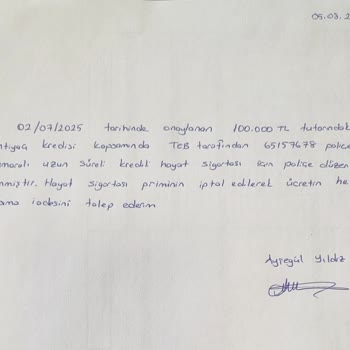 05.03.2
02/07/2025 tarihinde onaylanan 100.000 TL tutarındak
ntiyaç kredisi kapsamında TEB tarafından 65157678 poliçe
umaralı uzun süreli kredili hayat sigortası için poliçe düzen
nmiştir. Hayat sigortası priminin iptal edilerek ücretin he
ama iadesini talep ederim
Ayşegül Yıldız